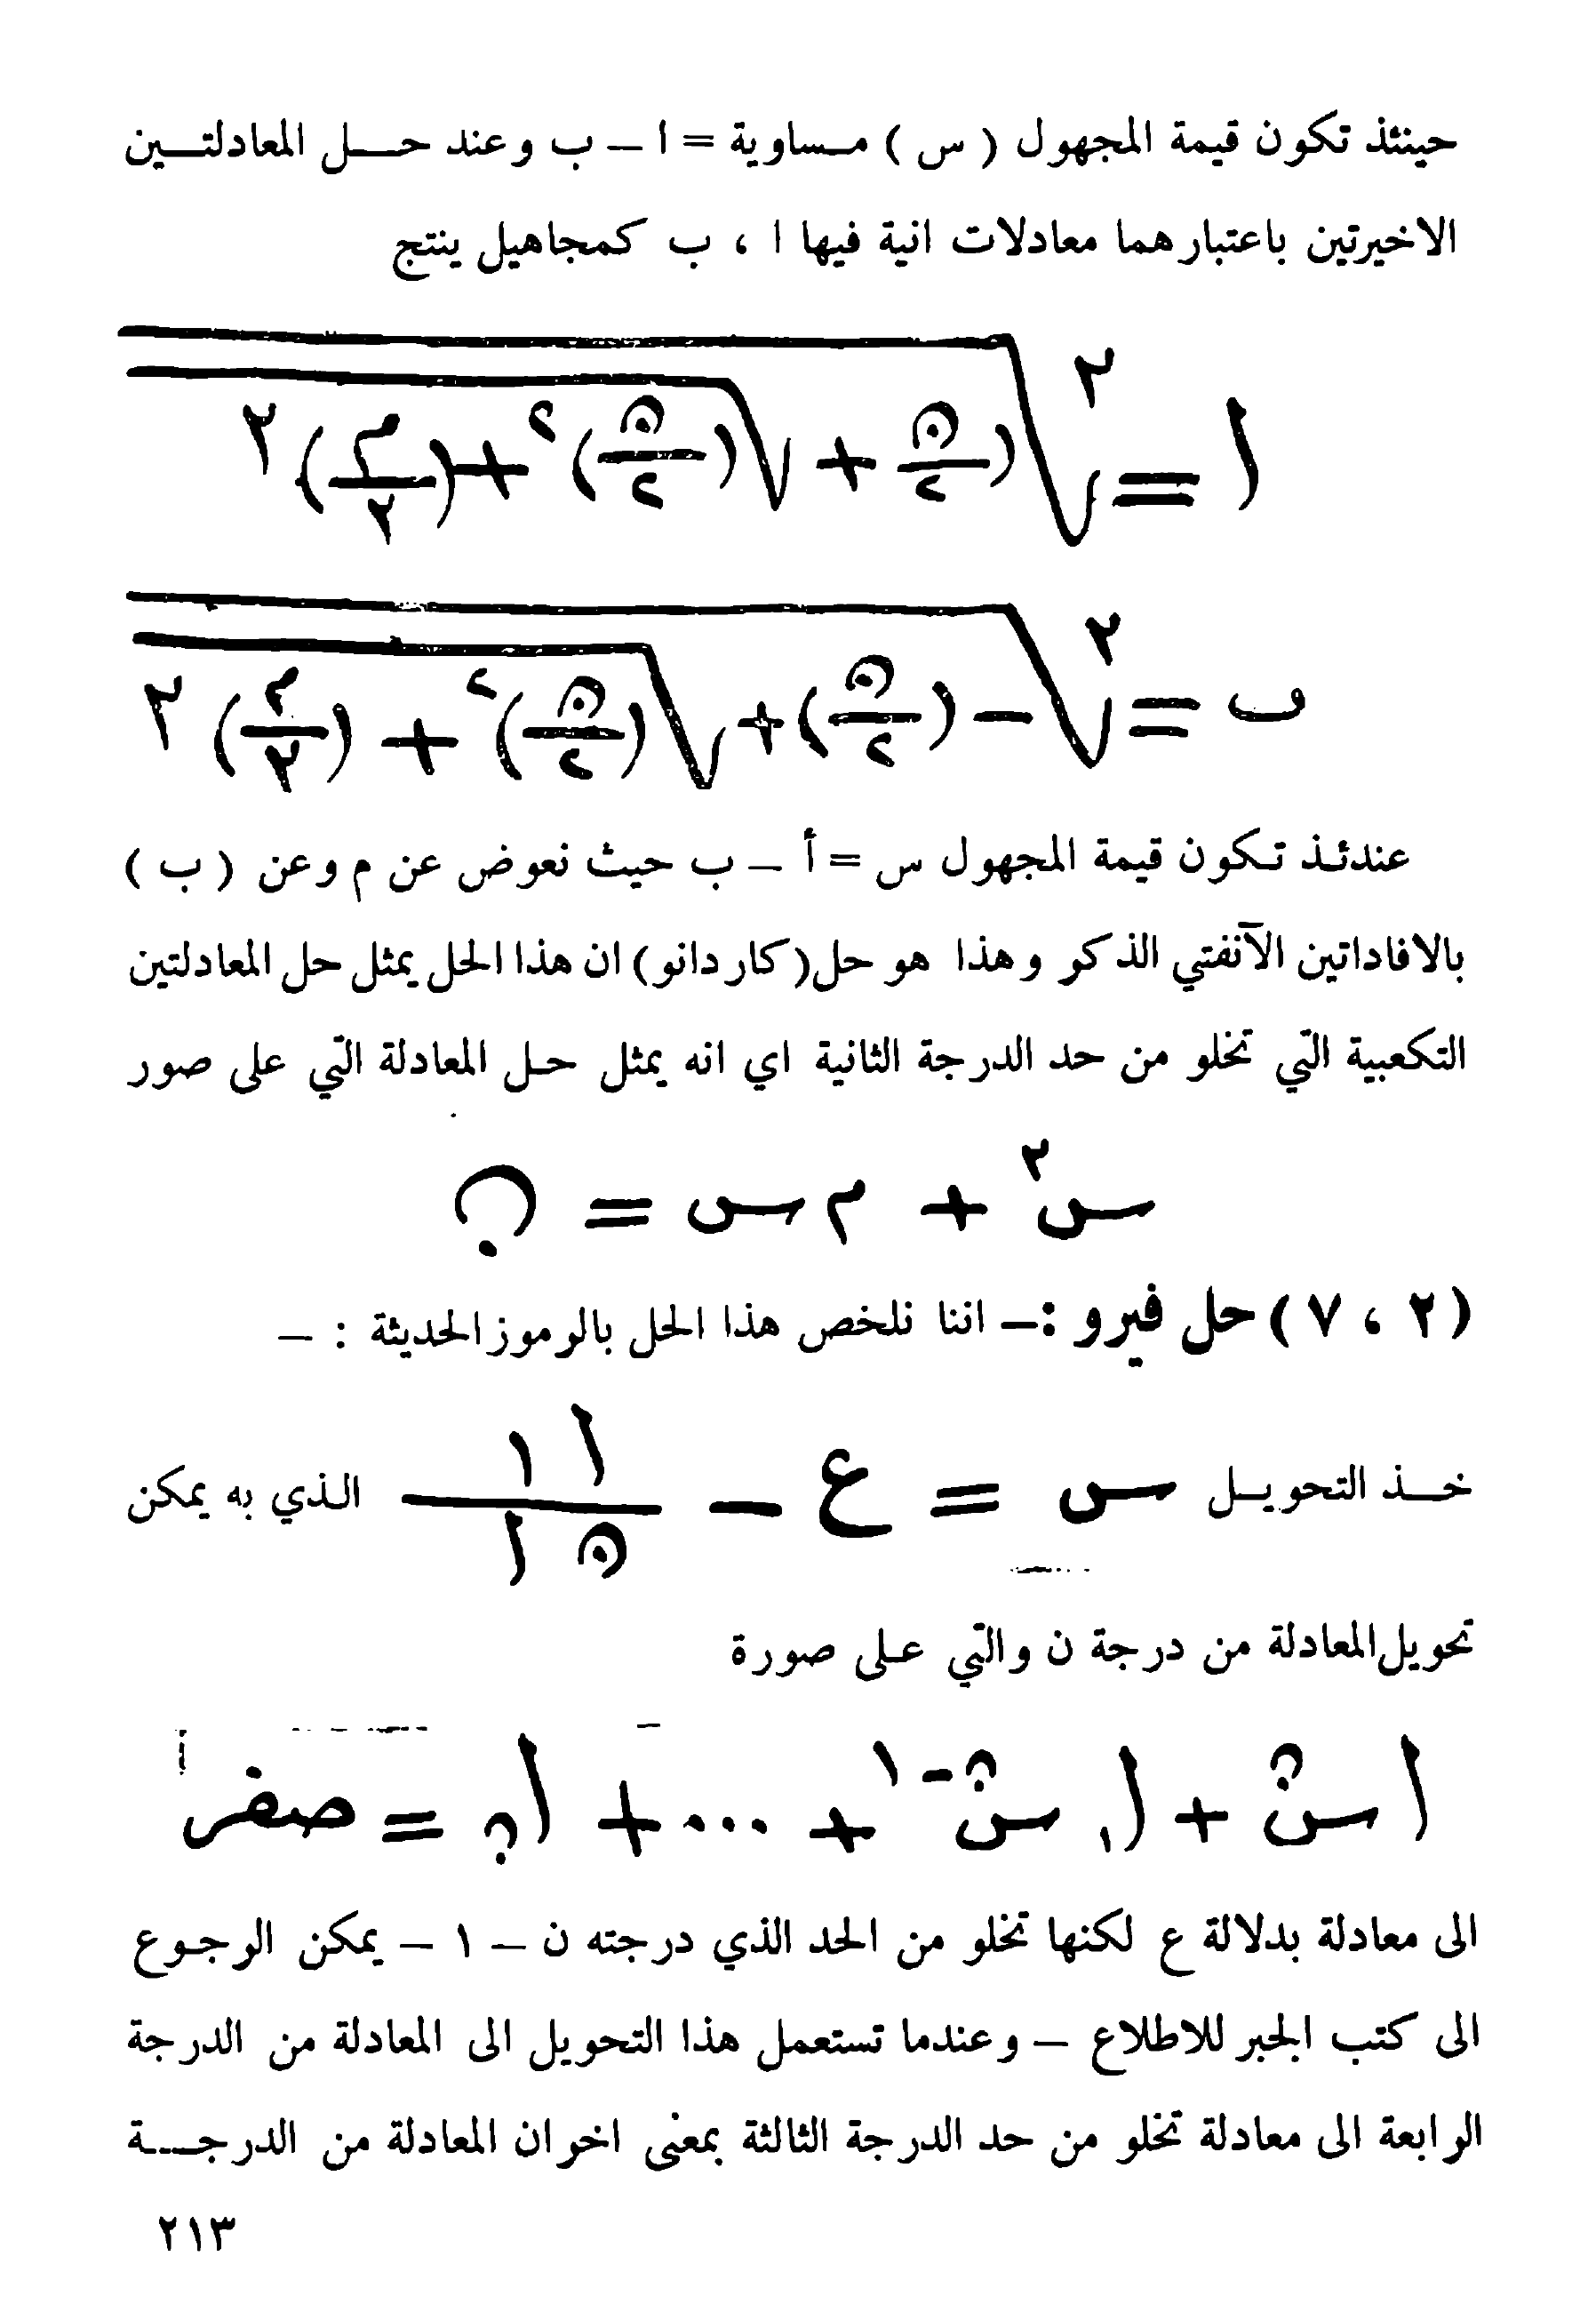 حينئذ تكون قيمة المجهول ( س ) مساوية = ا – ب وعند حل المعادلتين
الاخيرتين باعتبارهما معادلات انية فيها ا ، ب كمجاهيل ينتج
ا = ٣√( (ن/٢) + √( (ن/٢)^٢ + (م/٣)^٣ ) )
ب = ٣√( – (ن/٢) + √( (ن/٢)^٢ + (م/٣)^٣ ) )
عندئذ تكون قيمة المجهول س = أ – ب حيث نعوض عن م وعن ( ب )
بالافاداتين الآنفتي الذكر وهذا هو حل (كاردانو) ان هذا الحل يمثل حل المعادلتين
التكعبية التي تخلو من حد الدرجة الثانية اي انه يمثل حل المعادلة التي على صور
س^٣ + م س = ن
( ٢ ، ٧ ) حل فيرو :– اننا نلخص هذا الحل بالرموز الحديثة : –
خذ التحويل س = ع – ا ١ / ن ا الذي به يمكن
تحويل المعادلة من درجة ن والتي على صورة
ا س^ن + ا١ س^ن–١ + ... + ان = صفر
الى معادلة بدلالة ع لكنها تخلو من الحد الذي درجته ن – ١ – يمكن الرجوع
الى كتب الجبر للاطلاع – وعندما تستعمل هذا التحويل الى المعادلة من الدرجة
الرابعة الى معادلة تخلو من حد الدرجة الثالثة بمعنى اخر ان المعادلة من الدرجة
٢١٣